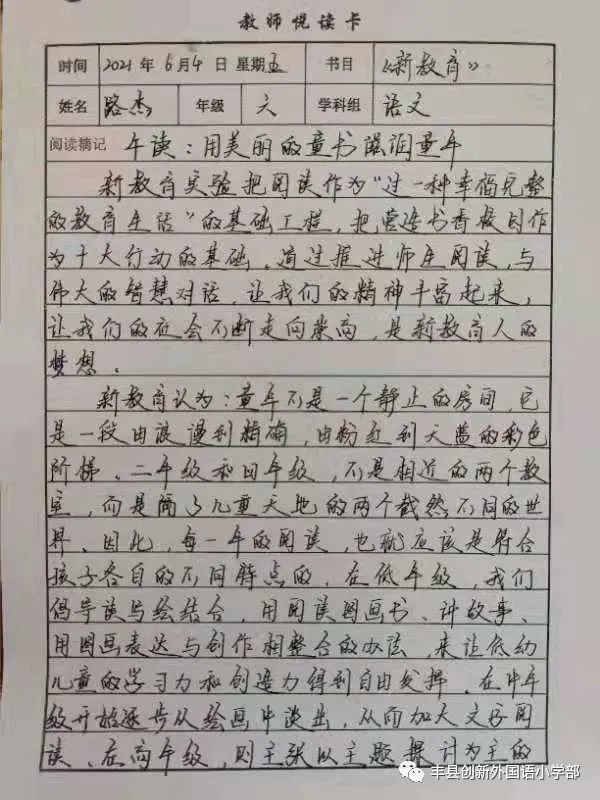 教师悦读卡
时间 2021年6月4日 星期五 书目 《新教育》
姓名 路杰 年级 六 学科组 语文
阅读摘记 午读：用美丽的童书滋润童年
新教育实验把阅读作为“过一种幸福完整
的教育生活”的基础工程，把营造书香校园作
为十大行动的基础。通过推进师生阅读，与
伟大的智慧对话，让我们的精神丰富起来，
让我们的社会不断走向崇高，是新教育人的
梦想。
新教育认为：童年不是一个静止的房间，它
是一段由浪漫到精确，由粉红到天蓝的彩色
阶梯。二年级和四年级，不是相近的两个教
室，而是隔了几重天地的两个截然不同的世
界。因此，每一年的阅读，也就应该是符合
孩子各自的不同特点的。在低年级，我们
倡导读写绘结合，用阅读图画书、讲故事、
用图画表达与创作相整合的办法，来让低幼
儿童的学习力和创造力得到自由发挥。在中年
级开始逐步从绘画中淡出，从而加大文字阅
读。在高年级，则主张以主题探讨为主的
丰县创新外国语小学部